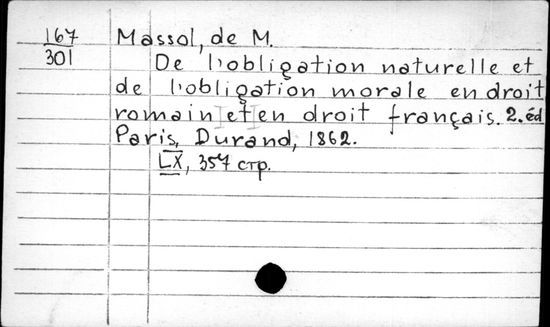 167
301
Massol, de M.
De l'obligation naturelle et
de l'obligation morale en droit
romain et en droit français. 2. éd
Paris, Durand, 1862.
LX, 357 стр.